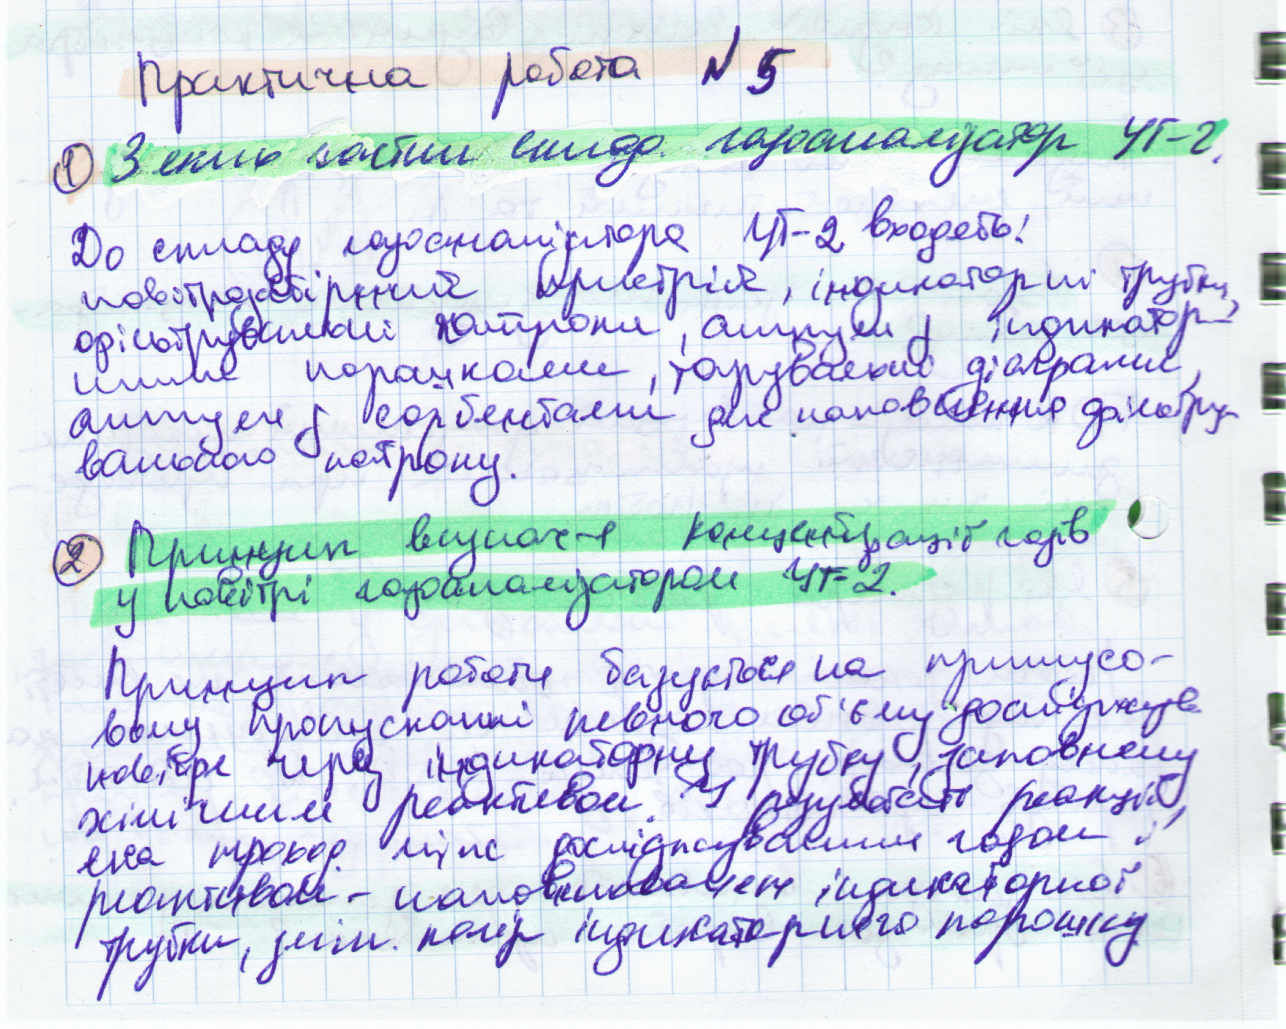 Практична робота № 5
① З яких частин склада. газоаналізатор УГ-2.
До складу газоаналізатора УГ-2 входять:
повітрозабірний пристрій, індикаторні трубки,
фільтрувальні патрони, ампули з індикатор-
ними порошками, градуювальні діаграми,
ампули з сорбентами для наповнення фільтру-
вального патрону.
② Принцип визнач-я концентрації газів
у повітрі газоаналізатором УГ-2.
Принцип роботи базується на примусо-
вому пропусканні певного обʼєму досліджув.
повітря через індикаторну трубку, заповнену
хімічним реактивом. У результаті реакції,
яка проход. між досліджуваним газом і
реактивом - наповнювачем індикаторної
трубки, змін. колір індикаторного порошку